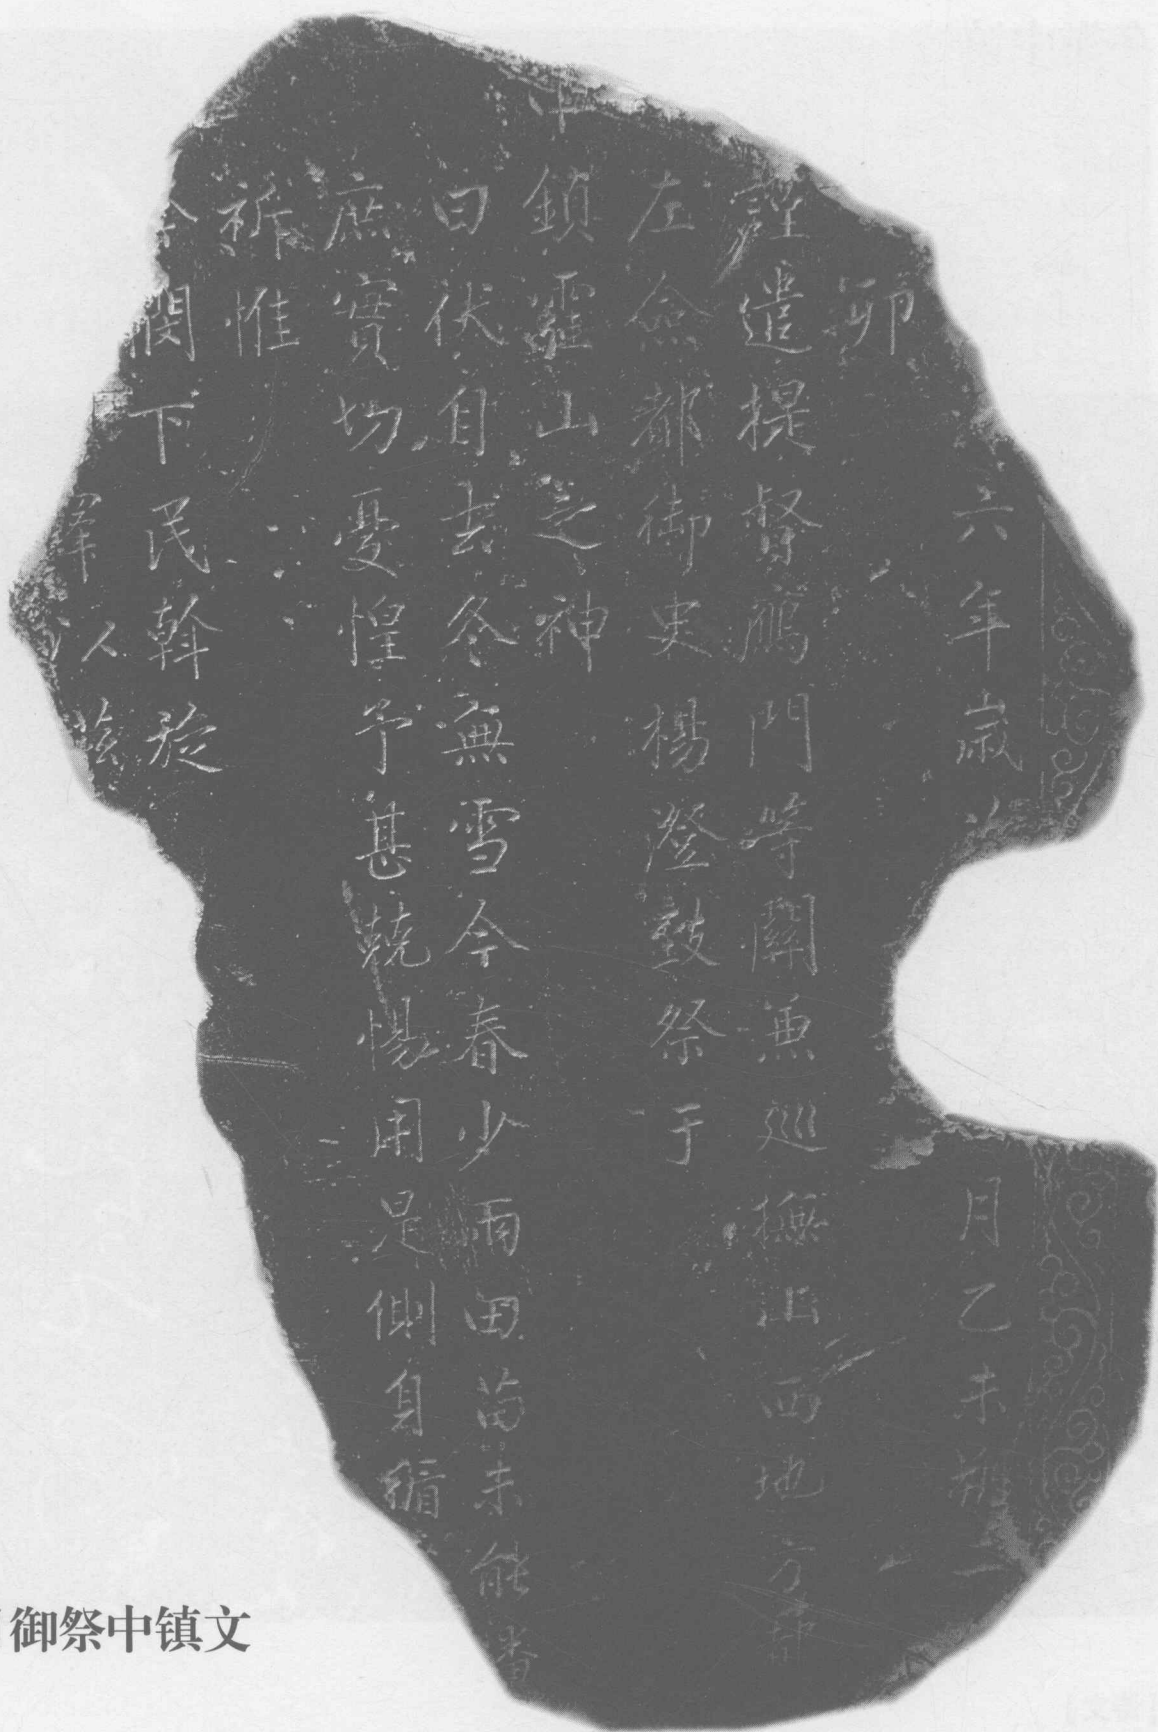 六年歲次
月乙未朔二
卯
謹遣提督鴈門等關兼巡撫山西地方都
左僉都御史楊澄致祭于
中鎮霍山之神
曰伏自去冬無雪今春少雨田苗未能番
庶實切憂惶予甚兢惕用是側身循
祈惟
閔下民斡旋
人
御祭中镇文